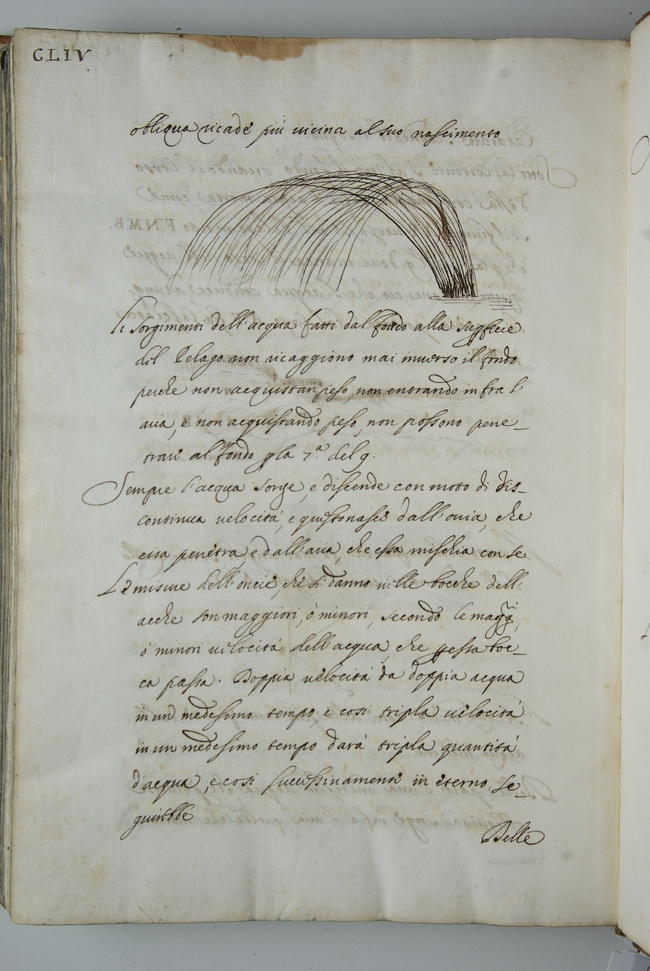 CLIV
obliqua ricade più vicina al suo nascimento
Li sorgimenti dell'acqua fatti dal fondo alla supficie
del Pelago non ricaggiono mai inverso il fondo
perche non acquistan peso, non entrando infra l'
aria, e non acquistando peso, non possono pene_
trare al fondo p la 7.a del 9.
Sempre l'acqua sorge, e discende con moto di dis_
continua velocità, e questo nasce dall'aria, che
essa penetra e dall'aria, che essa mischia con se
Le misure dell'oncie, che si danno nelle bocche dell'
acque son maggiori, ò minori, secondo le magg.ri,
ò minori velocità dell'acqua, che p essa boc_
ca passa. Doppia velocità da doppia acqua
in un medesimo tempo, e così tripla velocità
in un medesimo tempo darà tripla quantità
d'acqua, e così successivamente in eterno se_
guirebbe
Delle